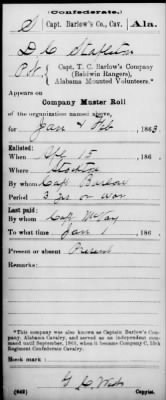 (Confederate.)
S | Capt. Barlow's Co., Cav., | Ala.
D. C. Stapleton
Pvt., Capt. T. C. Barlow's Company
(Baldwin Rangers),
Alabama Mounted Volunteers.*
Appears on
Company Muster Roll
of the organization named above,
for Jan & Feb, 1863.
Enlisted:
When 15, 186 .
Where Stockton
By whom Capt Barlow
Period 3 yrs or war
Last paid:
By whom Capt McVoy
To what time Jan 1, 186 .
Present or absent Present
Remarks:
*This company was also known as Captain Barlow's Com-
pany, Alabama Cavalry, and served as an independent com-
mand until September, 1863, when it became Company C, 15th
Regiment Confederate Cavalry.
Book mark:
(642)
Copyist.